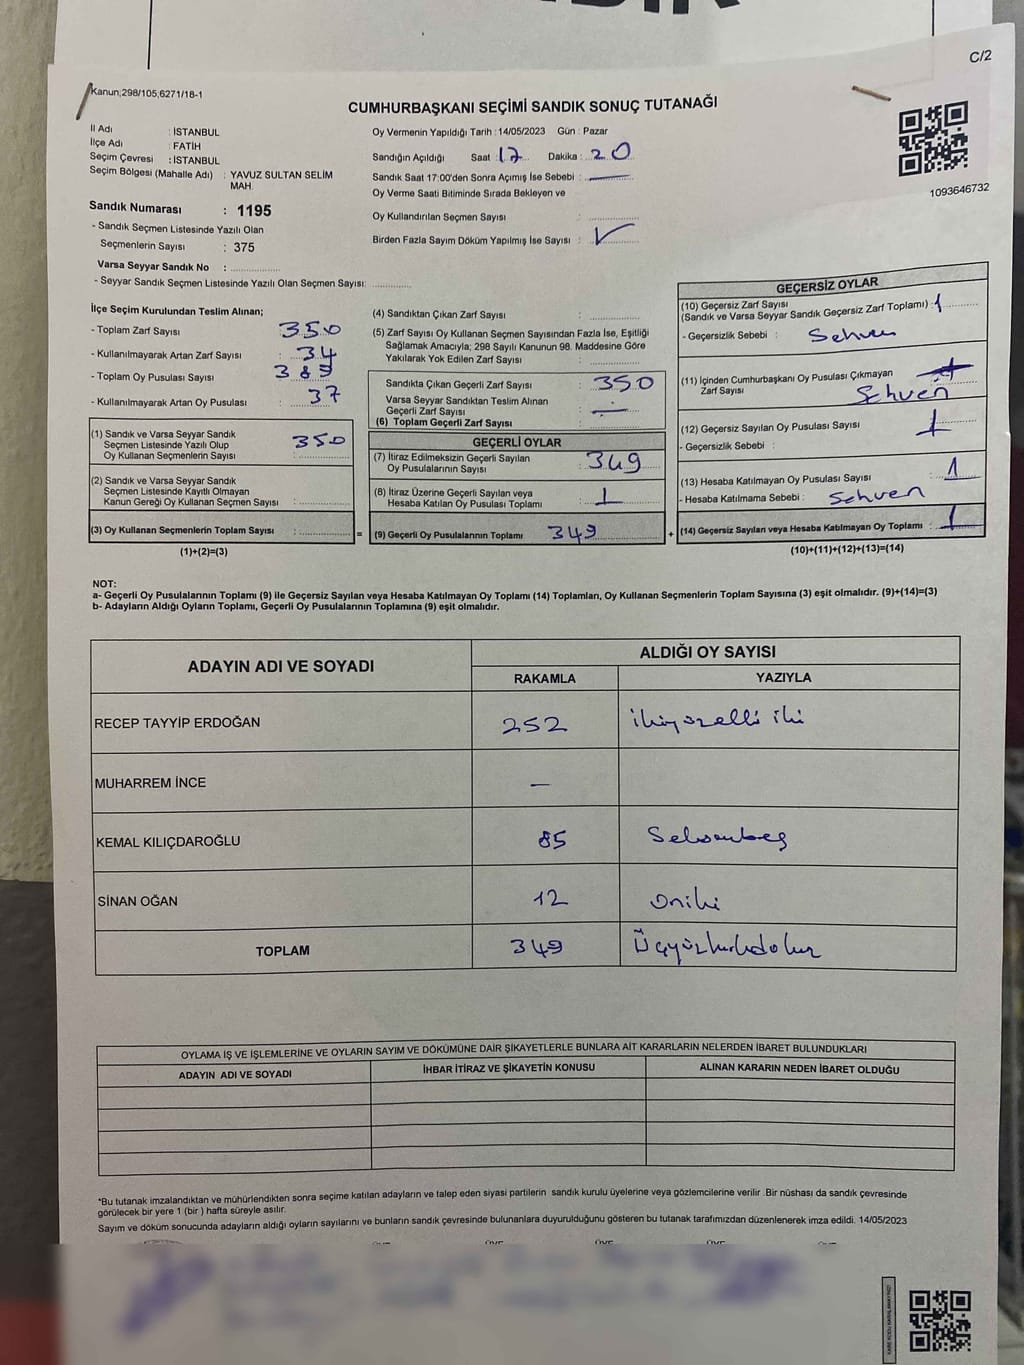 C/2
Kanun;298/105,6271/18-1
CUMHURBAŞKANI SEÇİMİ SANDIK SONUÇ TUTANAĞI
1093646732
İl Adı : İSTANBUL
İlçe Adı : FATİH
Seçim Çevresi : İSTANBUL
Seçim Bölgesi (Mahalle Adı) : YAVUZ SULTAN SELİM MAH.
Sandık Numarası : 1195
- Sandık Seçmen Listesinde Yazılı Olan
Seçmenlerin Sayısı : 375
Varsa Seyyar Sandık No :
- Seyyar Sandık Seçmen Listesinde Yazılı Olan Seçmen Sayısı:
Oy Vermenin Yapıldığı Tarih : 14/05/2023 Gün : Pazar
Sandığın Açıldığı Saat : 17 Dakika : 20
Sandık Saat 17:00'den Sonra Açımış İse Sebebi : —
Oy Verme Saati Bitiminde Sırada Bekleyen ve
Oy Kullandırılan Seçmen Sayısı :
Birden Fazla Sayım Döküm Yapılmış İse Sayısı :
İlçe Seçim Kurulundan Teslim Alınan;
- Toplam Zarf Sayısı : 350
- Kullanılmayarak Artan Zarf Sayısı : 34
- Toplam Oy Pusulası Sayısı : 385
- Kullanılmayarak Artan Oy Pusulası : 37
(1) Sandık ve Varsa Seyyar Sandık
Seçmen Listesinde Yazılı Olup
Oy Kullanan Seçmenlerin Sayısı : 350
(2) Sandık ve Varsa Seyyar Sandık
Seçmen Listesinde Kayıtlı Olmayan
Kanun Gereği Oy Kullanan Seçmen Sayısı :
(3) Oy Kullanan Seçmenlerin Toplam Sayısı :
(1)+(2)=(3)
=
(4) Sandıktan Çıkan Zarf Sayısı :
(5) Zarf Sayısı Oy Kullanan Seçmen Sayısından Fazla İse, Eşitliği
Sağlamak Amacıyla; 298 Sayılı Kanunun 98. Maddesine Göre
Yakılarak Yok Edilen Zarf Sayısı :
Sandıkta Çıkan Geçerli Zarf Sayısı : 350
Varsa Seyyar Sandıktan Teslim Alınan
Geçerli Zarf Sayısı : —
(6) Toplam Geçerli Zarf Sayısı :
GEÇERLİ OYLAR
(7) İtiraz Edilmeksizin Geçerli Sayılan
Oy Pusulalarının Sayısı : 349
(8) İtiraz Üzerine Geçerli Sayılan veya
Hesaba Katılan Oy Pusulası Toplamı : 1
(9) Geçerli Oy Pusulalarının Toplamı : 349
+
GEÇERSİZ OYLAR
(10) Geçersiz Zarf Sayısı
(Sandık ve Varsa Seyyar Sandık Geçersiz Zarf Toplamı) : 1
- Geçersizlik Sebebi : Sehven
(11) İçinden Cumhurbaşkanı Oy Pusulası Çıkmayan
Zarf Sayısı : Sehven
(12) Geçersiz Sayılan Oy Pusulası Sayısı : 1
- Geçersizlik Sebebi :
(13) Hesaba Katılmayan Oy Pusulası Sayısı : 1
- Hesaba Katılmama Sebebi : Sehven
(14) Geçersiz Sayılan veya Hesaba Katılmayan Oy Toplamı : 1
(10)+(11)+(12)+(13)=(14)
NOT:
a- Geçerli Oy Pusulalarının Toplamı (9) ile Geçersiz Sayılan veya Hesaba Katılmayan Oy Toplamı (14) Toplamları, Oy Kullanan Seçmenlerin Toplam Sayısına (3) eşit olmalıdır. (9)+(14)=(3)
b- Adayların Aldığı Oyların Toplamı, Geçerli Oy Pusulalarının Toplamına (9) eşit olmalıdır.
ADAYIN ADI VE SOYADI ALDIĞI OY SAYISI
RAKAMLA YAZIYLA
RECEP TAYYİP ERDOĞAN 252 ikiyüzelli iki
MUHARREM İNCE —
KEMAL KILIÇDAROĞLU 85 Seksenbeş
SİNAN OĞAN 12 oniki
TOPLAM 349 Üçyüzkırkdokuz
OYLAMA İŞ VE İŞLEMLERİNE VE OYLARIN SAYIM VE DÖKÜMÜNE DAİR ŞİKAYETLERLE BUNLARA AİT KARARLARIN NELERDEN İBARET BULUNDUKLARI
ADAYIN ADI VE SOYADI İHBAR İTİRAZ VE ŞİKAYETİN KONUSU ALINAN KARARIN NEDEN İBARET OLDUĞU
*Bu tutanak imzalandıktan ve mühürlendikten sonra seçime katılan adayların ve talep eden siyasi partilerin sandık kurulu üyelerine veya gözlemcilerine verilir .Bir nüshası da sandık çevresinde
görülecek bir yere 1 (bir ) hafta süreyle asılır.
Sayım ve döküm sonucunda adayların aldığı oyların sayılarını ve bunların sandık çevresinde bulunanlara duyurulduğunu gösteren bu tutanak tarafımızdan düzenlenerek imza edildi. 14/05/2023